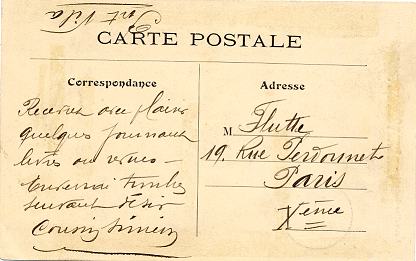 Port Vila
CARTE POSTALE
Correspondance
Recevrai avec plaisir
quelques journaux
livres ou revues —
Enverrai timbres
suivant désir
Cousin
Adresse
M Flutte
19. Rue Perdonnet
Paris
Xème